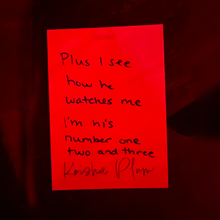 Plus I see
how he
watches me
I'm his
number one
two and three